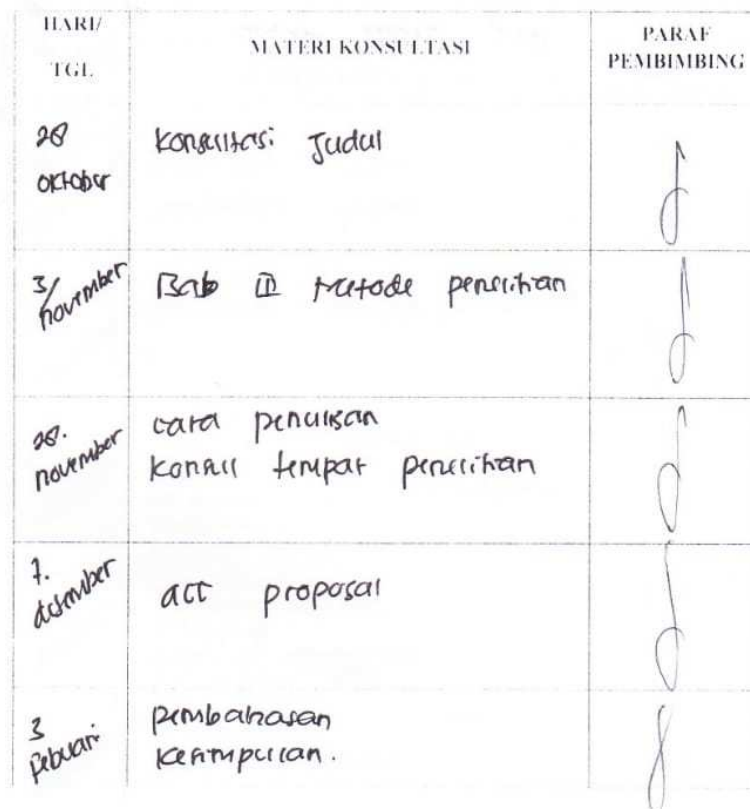 HARI/
TGL
MATERI KONSULTASI
PARAF
PEMBIMBING
28
oktober
Konsultasi Judul
3/
november
Bab III Metode penelitian
28.
november
cara penulisan
Konsul tempat penelitian
7.
desember
acc proposal
3
Pebuari
pembahasan
Kesimpulan.